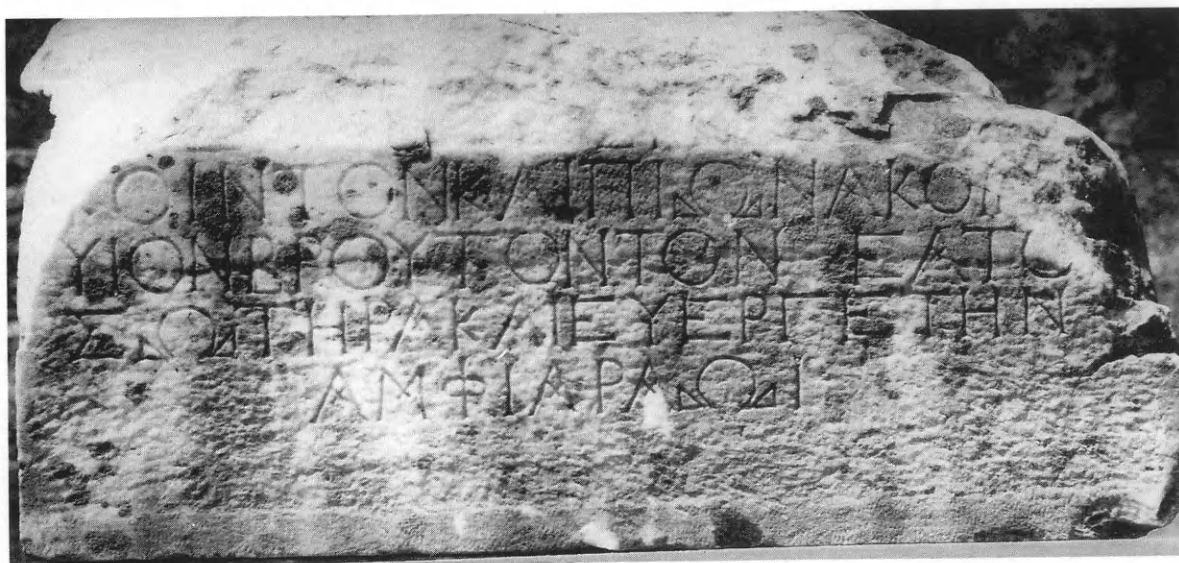 ΚΟΙΝΤΟΝΚΑΙΠΙΩΝΑΚΟΙ
ΥΙΟΝΒΡΟΥΤΟΝΤΟΝ ΕΑΤΟ
ΣΩΤΗΡΑΚΑΙΕΥΕΡΓΕΤΗΝ
ΑΜΦΙΑΡΑΩΙ